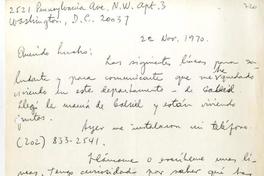 2521 Pennsylvania Ave. N.W. Apt. 3
Washington, D.C. 20037
2 Nov. 1970.
Querido Lucho:
Las siguientes líneas para sa-
ludarte y para comunicarte que me
viviendo en este departamento - de Gabriel
llegó la mamá de Gabriel y están viviendo
juntos.
Ayer me instalaron mi teléfono.
(202) 833-2541.
Llámame o escríbeme unas lí-
neas. Tengo curiosidad por saber qué has